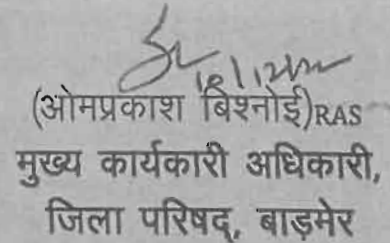 (ओमप्रकाश बिश्नोई)RAS
मुख्य कार्यकारी अधिकारी,
जिला परिषद्, बाड़मेर